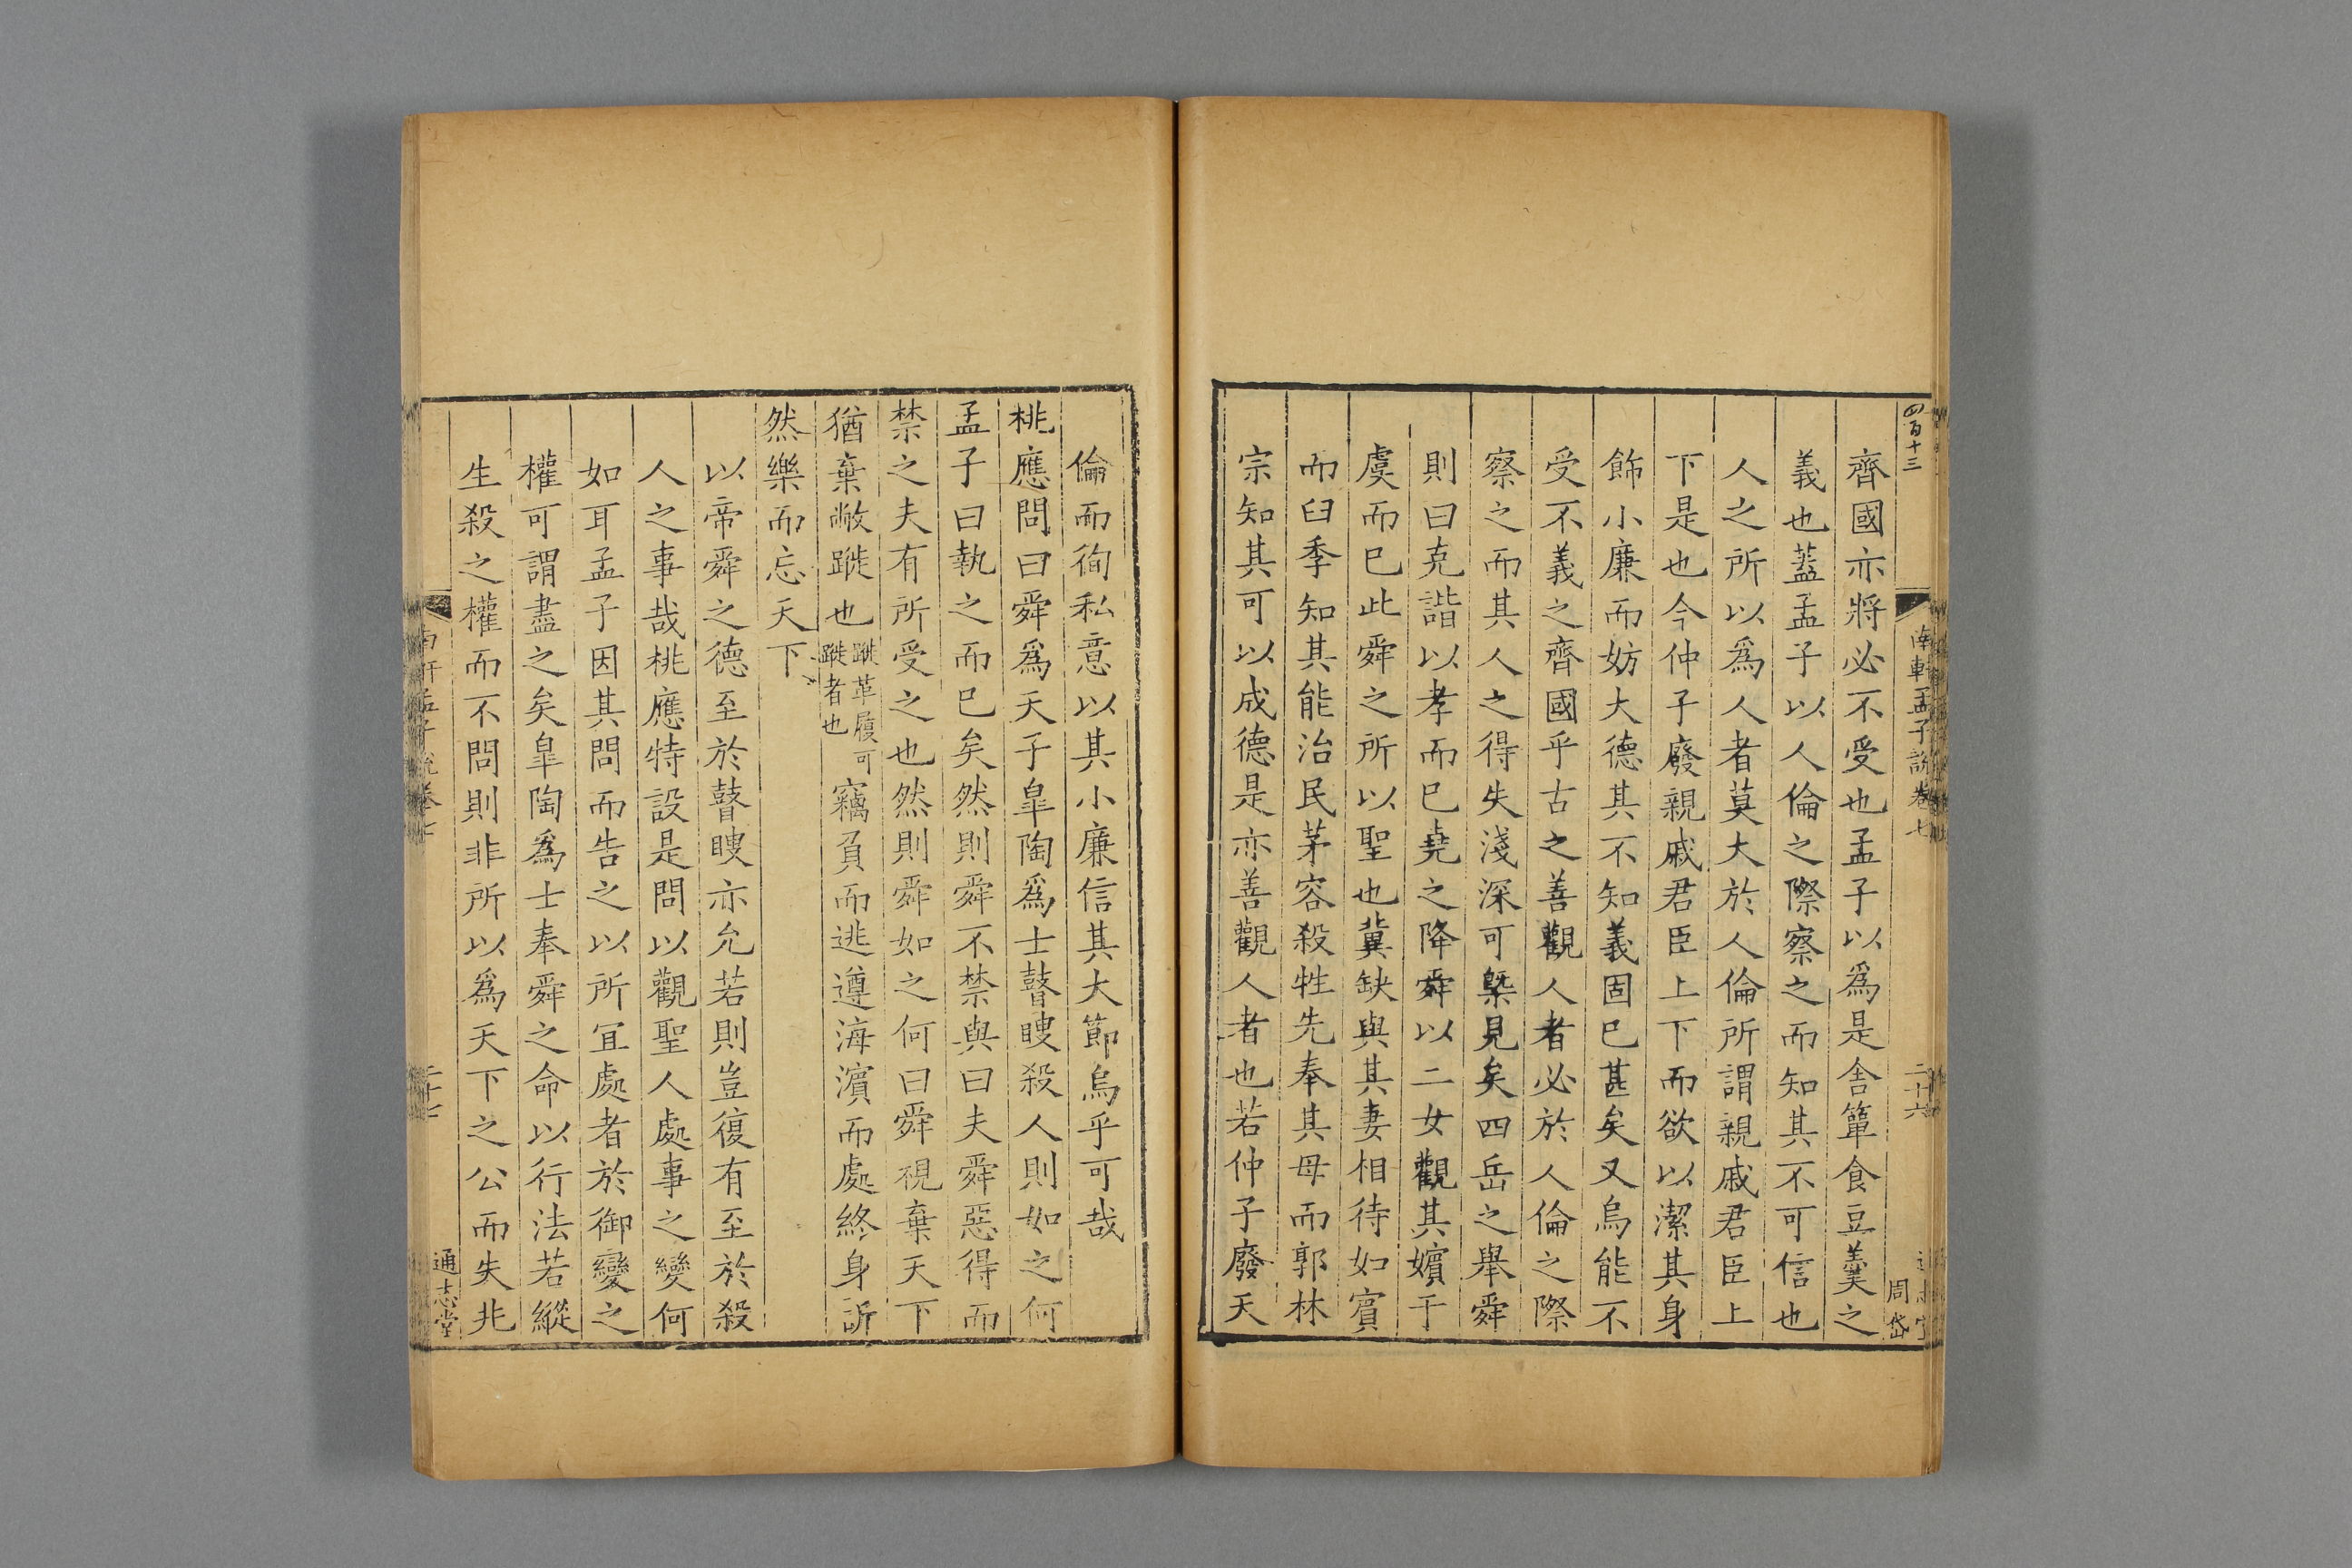 四百十三
南軒孟子說卷七
二十六
周岱
齊國亦將必不受也孟子以爲是舍簞食豆羹之
義也蓋孟子以人倫之際察之而知其不可信也
人之所以爲人者莫大於人倫所謂親戚君臣上
下是也今仲子廢親戚君臣上下而欲以潔其身
飾小廉而妨大德其不知義固已甚矣又烏能不
受不義之齊國乎古之善觀人者必於人倫之際
察之而其人之得失淺深可槩見矣四岳之舉舜
則曰克諧以孝而已堯之降舜以二女觀其嬪于
虞而已此舜之所以聖也冀缺與其妻相待如賓
而臼季知其能治民茅容殺牲先奉其母而郭林
宗知其可以成德是亦善觀人者也若仲子廢天
倫而徇私意以其小廉信其大節烏乎可哉
桃應問曰舜爲天子皐陶爲士瞽瞍殺人則如之何
孟子曰執之而已矣然則舜不禁與曰夫舜惡得而
禁之夫有所受之也然則舜如之何曰舜視棄天下
猶棄敝蹝也蹝革履可蹝者也竊負而逃遵海濱而處終身訢
然樂而忘天下
以帝舜之德至於瞽瞍亦允若則豈復有至於殺
人之事哉桃應特設是問以觀聖人處事之變何
如耳孟子因其問而告之以所宜處者於御變之
權可謂盡之矣皐陶爲士奉舜之命以行法若縱
生殺之權而不問則非所以爲天下之公而失兆
南軒孟子說卷七
二十七
通志堂